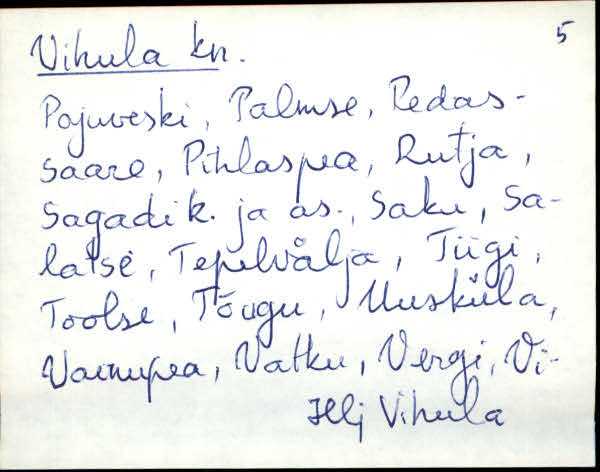 5
Vihula kn.
Pajuveski, Palmse, Pedas-
saare, Pihlaspea, Rutja,
Sagadi k. ja as., Saku, Sa-
latse, Tepelvälja, Tiigi,
Toolse, Tõugu, Uusküla,
Vainupea, Vatku, Vergi, Vi-
Hlj Vihula